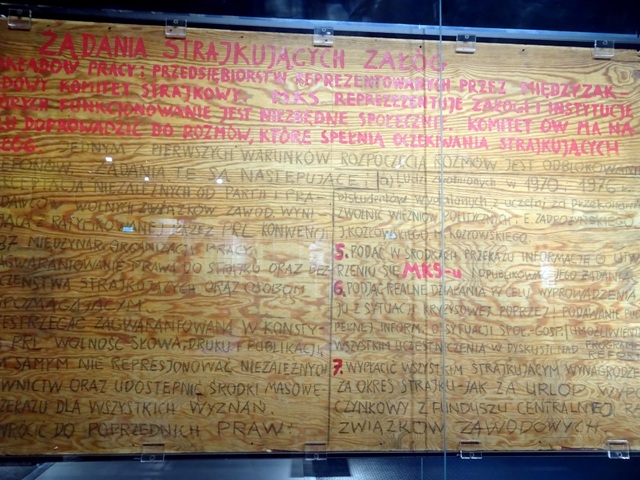 ŻĄDANIA STRAJKUJĄCYCH ZAŁÓG
ZAKŁADÓW PRACY I PRZEDSIĘBIORSTW REPREZENTOWANYCH PRZEZ MIĘDZYZAK-
DOWY KOMITET STRAJKOWY. MKS REPREZENTUJE ZAŁOGI I INSTYTUCJE
FUNKCJONOWANIE JEST NIEZBĘDNE SPOŁECZNIE. KOMITET ÓW MA NA
DOPROWADZIĆ DO ROZMÓW, KTÓRE SPEŁNIĄ OCZEKIWANIA STRAJKUJĄCYCH
ZAŁÓG. JEDNYM PIERWSZYCH WARUNKÓW ROZPOCZĘCIA ROZMÓW JEST ODBLOKOWANIE
TELEFONÓW. ŻĄDANIA TE SĄ NASTĘPUJĄCE:
NIEZALEŻNYCH OD PARTII I PRA-
DAWCÓW WOLNYCH ZWIĄZKÓW ZAWOD. WYNI-
RATYFIKOWANEJ PRZEZ PRL KONWENCJI
87 MIĘDZYNAR. ORGANIZACJI PRACY.
ZAGWARANTOWANIE PRAWA DO STRAJKU ORAZ BEZ-
CZEŃSTWA STRAJKUJĄCYCH ORAZ OSOBOM
SPOMAGAJĄCYM
ESTRZEGAĆ ZAGWARANTOWANĄ W KONSTY-
PRL WOLNOŚĆ SŁOWA, DRUKU I PUBLIKACJI,
A SAMYM NIE REPRESJONOWAĆ NIEZALEŻNYCH
WNICTW ORAZ UDOSTĘPNIĆ ŚRODKI MASOWE-
ZEKAZU DLA WSZYSTKICH WYZNAŃ.
WRÓCIĆ DO POPRZEDNICH PRAW:
a) LUDZI ZWOLNIONYCH W 1970 1976
b) STUDENTÓW WYDALONYCH Z UCZELNI ZA PRZEKONANIA
ZWOLNIĆ WIĘŹNIÓW POLITYCZNYCH: E. ZADROŻYŃSKIEGO
J. KOZŁOWSKIEGO M. KOZŁOWSKIEGO.
5. PODAĆ W ŚRODKACH PRZEKAZU INFORMACJĘ O UTWO
RZENIU SIĘ MKS-u I OPUBLIKOWAĆ JEGO ŻĄDANIA
6. PODJĄĆ REALNE DZIAŁANIA W CELU WYPROWADZENIA
JU Z SYTUACJI KRYZYSOWEJ POPRZEZ: PODAWANIE
PEŁNEJ INFORM. O SYTUACJI SPOŁ-GOSP
WSZYSTKIM UCZESTNICZENIA W DYSKUSJI NAD PROGRAMEM
REFORM
7. WYPŁACIĆ WSZYSTKIM STRAJKUJĄCYM WYNAGRODZE
ZA OKRES STRAJKU-JAK ZA URLOP WYPO
CZYNKOWY Z FUNDUSZU CENTRALNEJ R
ZWIĄZKÓW ZAWODOWYCH.